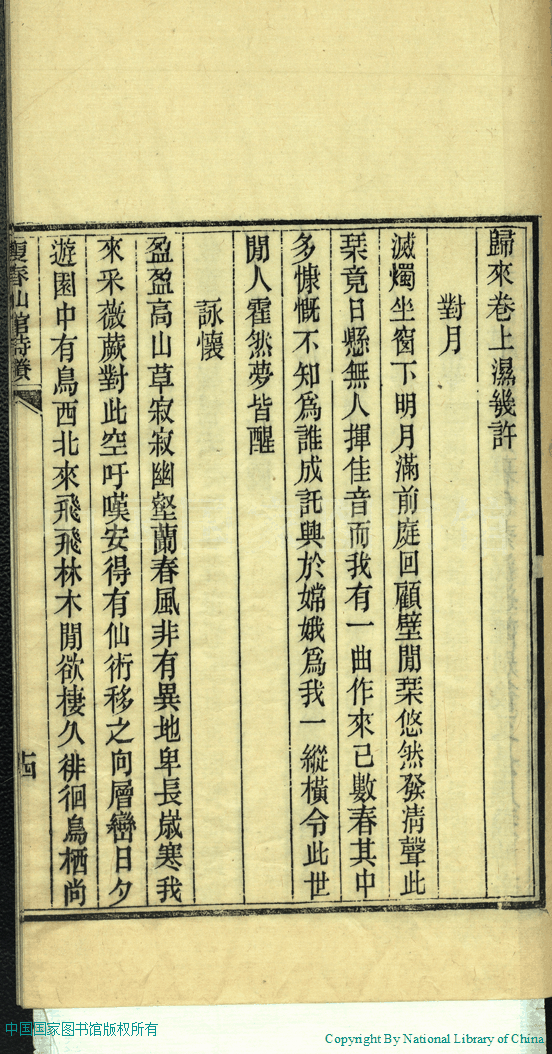 歸來卷上濕幾許
對月
滅燭坐窗下明月滿前庭回顧壁閒琹悠然發淸聲此
琹竟日懸無人揮佳音而我有一曲作來已數春其中
多慷慨不知爲誰成託興於嫦娥爲我一縱橫令此世
閒人霍然夢皆醒
詠懷
盈盈高山草寂寂幽壑蘭春風非有異地卑長歲寒我
來采薇蕨對此空吁嘆安得有仙術移之向層巒日夕
遊園中有鳥西北來飛飛林木閒欲棲久徘徊鳥栖尚
春山館詩賸
十四
中国国家图书馆版权所有
Copyright By National Library of China